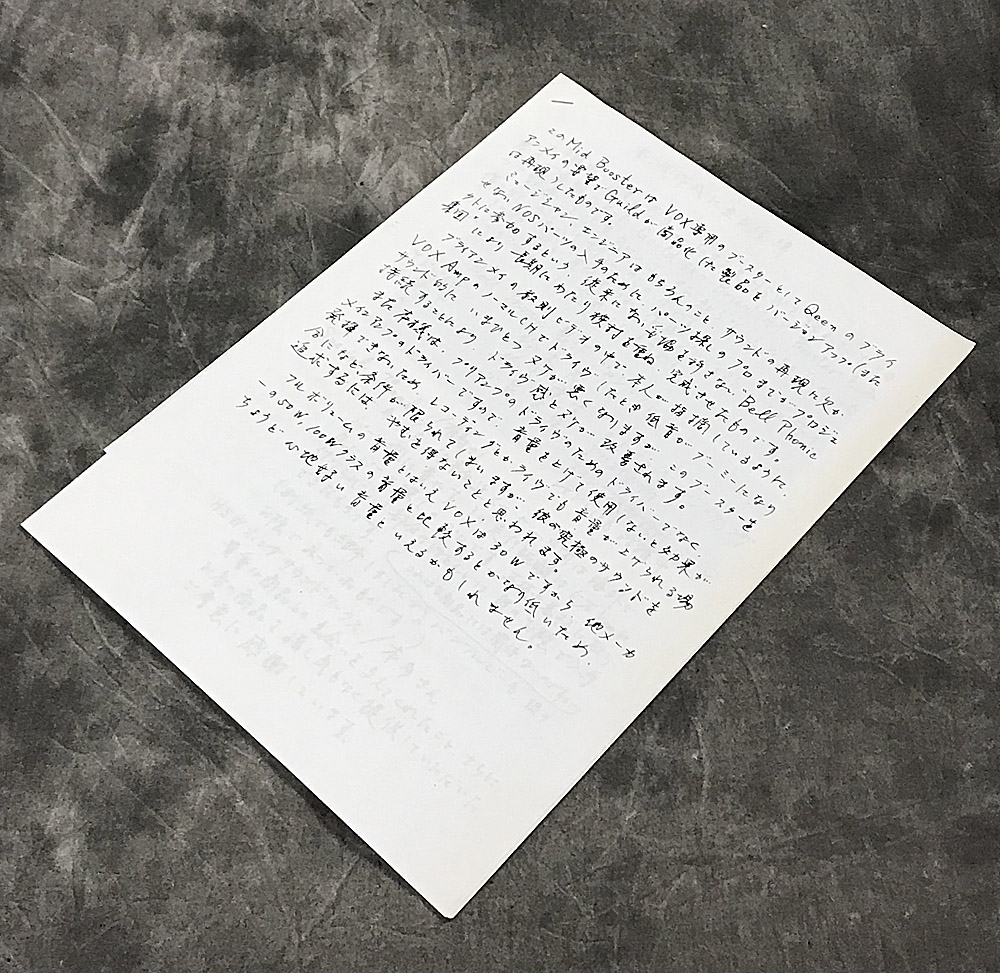 このMid BoosterはVOX専用のブースターとしてQeenのブライ
アンメイの希望でGuildが商品化した製品をバージョンアップ(また
は再現)したものです。
ミュージシャン、エンジニアはもちろんのこと、サウンドの再現に欠か
せないNOSパーツの入手のために、パーツ探しのプロまでがプロジェ
クトに参加するという、従来にない妥協を許さない、Bell Phonic
により長期にわたり検討を重ね、完成させたものです。
ブライアンメイの教則ビデオの中で本人が指摘しているように、
VOX AmpのノーマルCHでドライヴしたとき低音がブーミーになり
サウンド的に、いまひとつヌケが悪くなりますが、このブースターを
接続することにより、ドライヴ感とヌケが改善されます。
また本機は、プリアンプのドライヴのためのドライバーでなく、
メインアンプのドライバーですので、音量を上げて使用しないと効果が
発揮できないため、レコーディングとかライヴでも音量が上げられる場
合になど、条件が限られてしまいますが、彼の究極のサウンドを
追求するには、やむを得ないことと思われます。
フルボリュームの音量とはいえVOXは30Wですから、他メーカ
ーの50W、100Wクラスの音量と比較するとかなり低いため、
ちょうど心地好い音量といえるかもしれません。